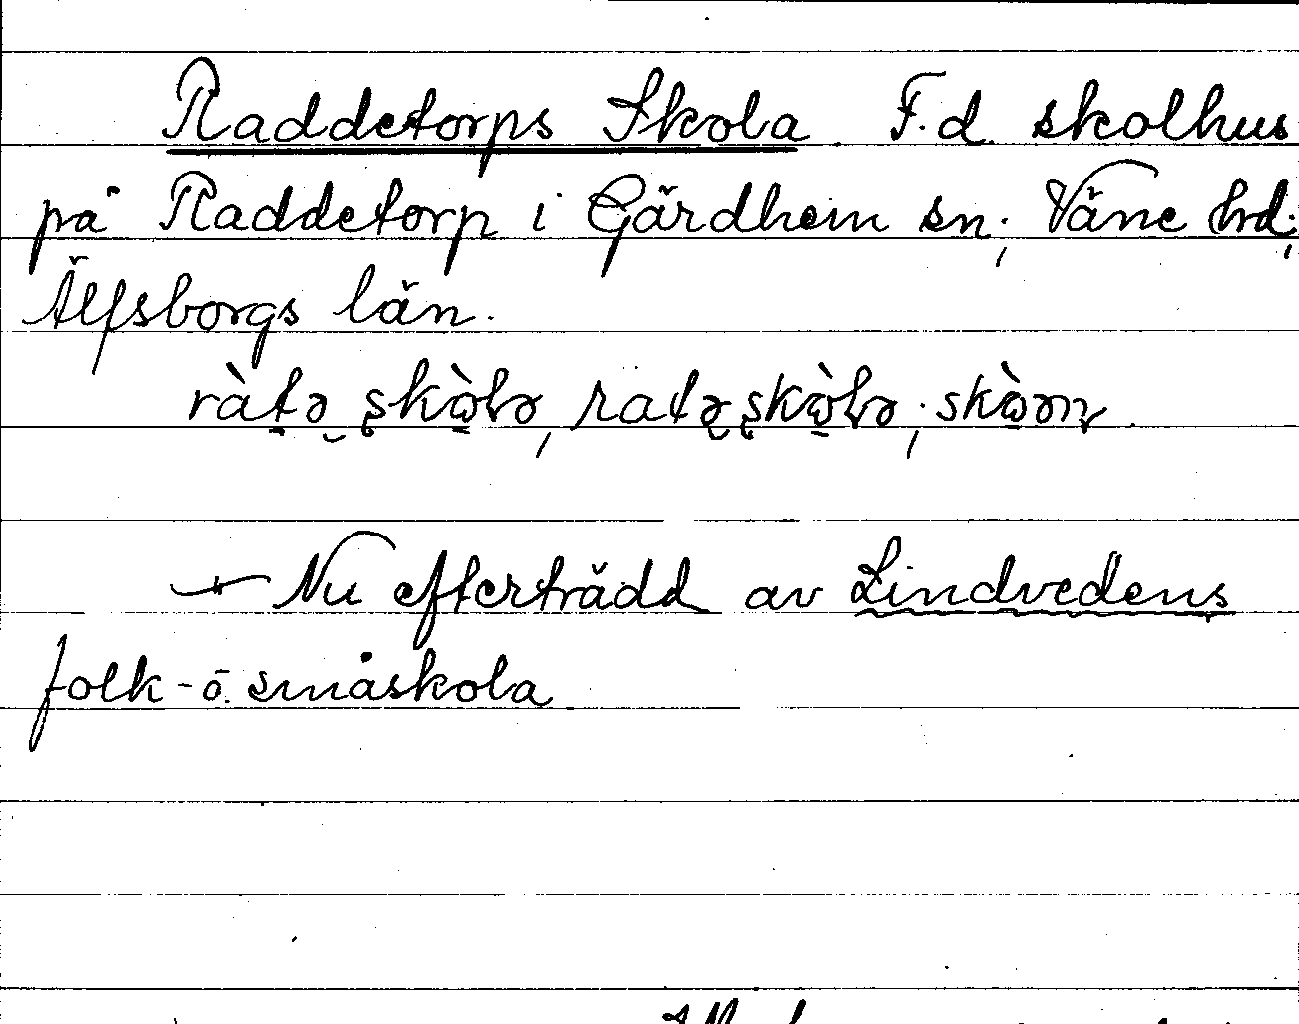 Raddetorps Skola F.d. skolhus
på Raddetorp i Gärdhem sn; Väne hd;
Älfsborgs län.
ràtə skòlə, ratə skòlə; skòən.
Nu efterträdd av Lindvedens
folk- o. småskola